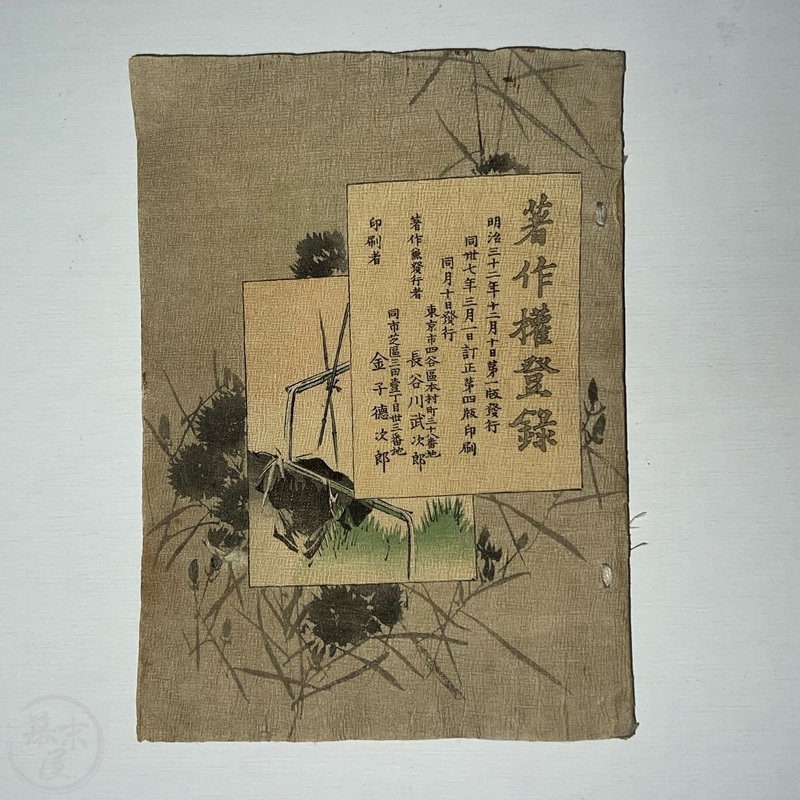 著作權登錄
明治三十二年十二月十日第一版發行
同卅七年三月一日訂正第四版印刷
同月十日發行
東京市四谷區本村町三十八番地
著作兼發行者 長谷川武次郎
同市芝區三田壹丁目卅三番地
印刷者 金子德次郎
幕末屋